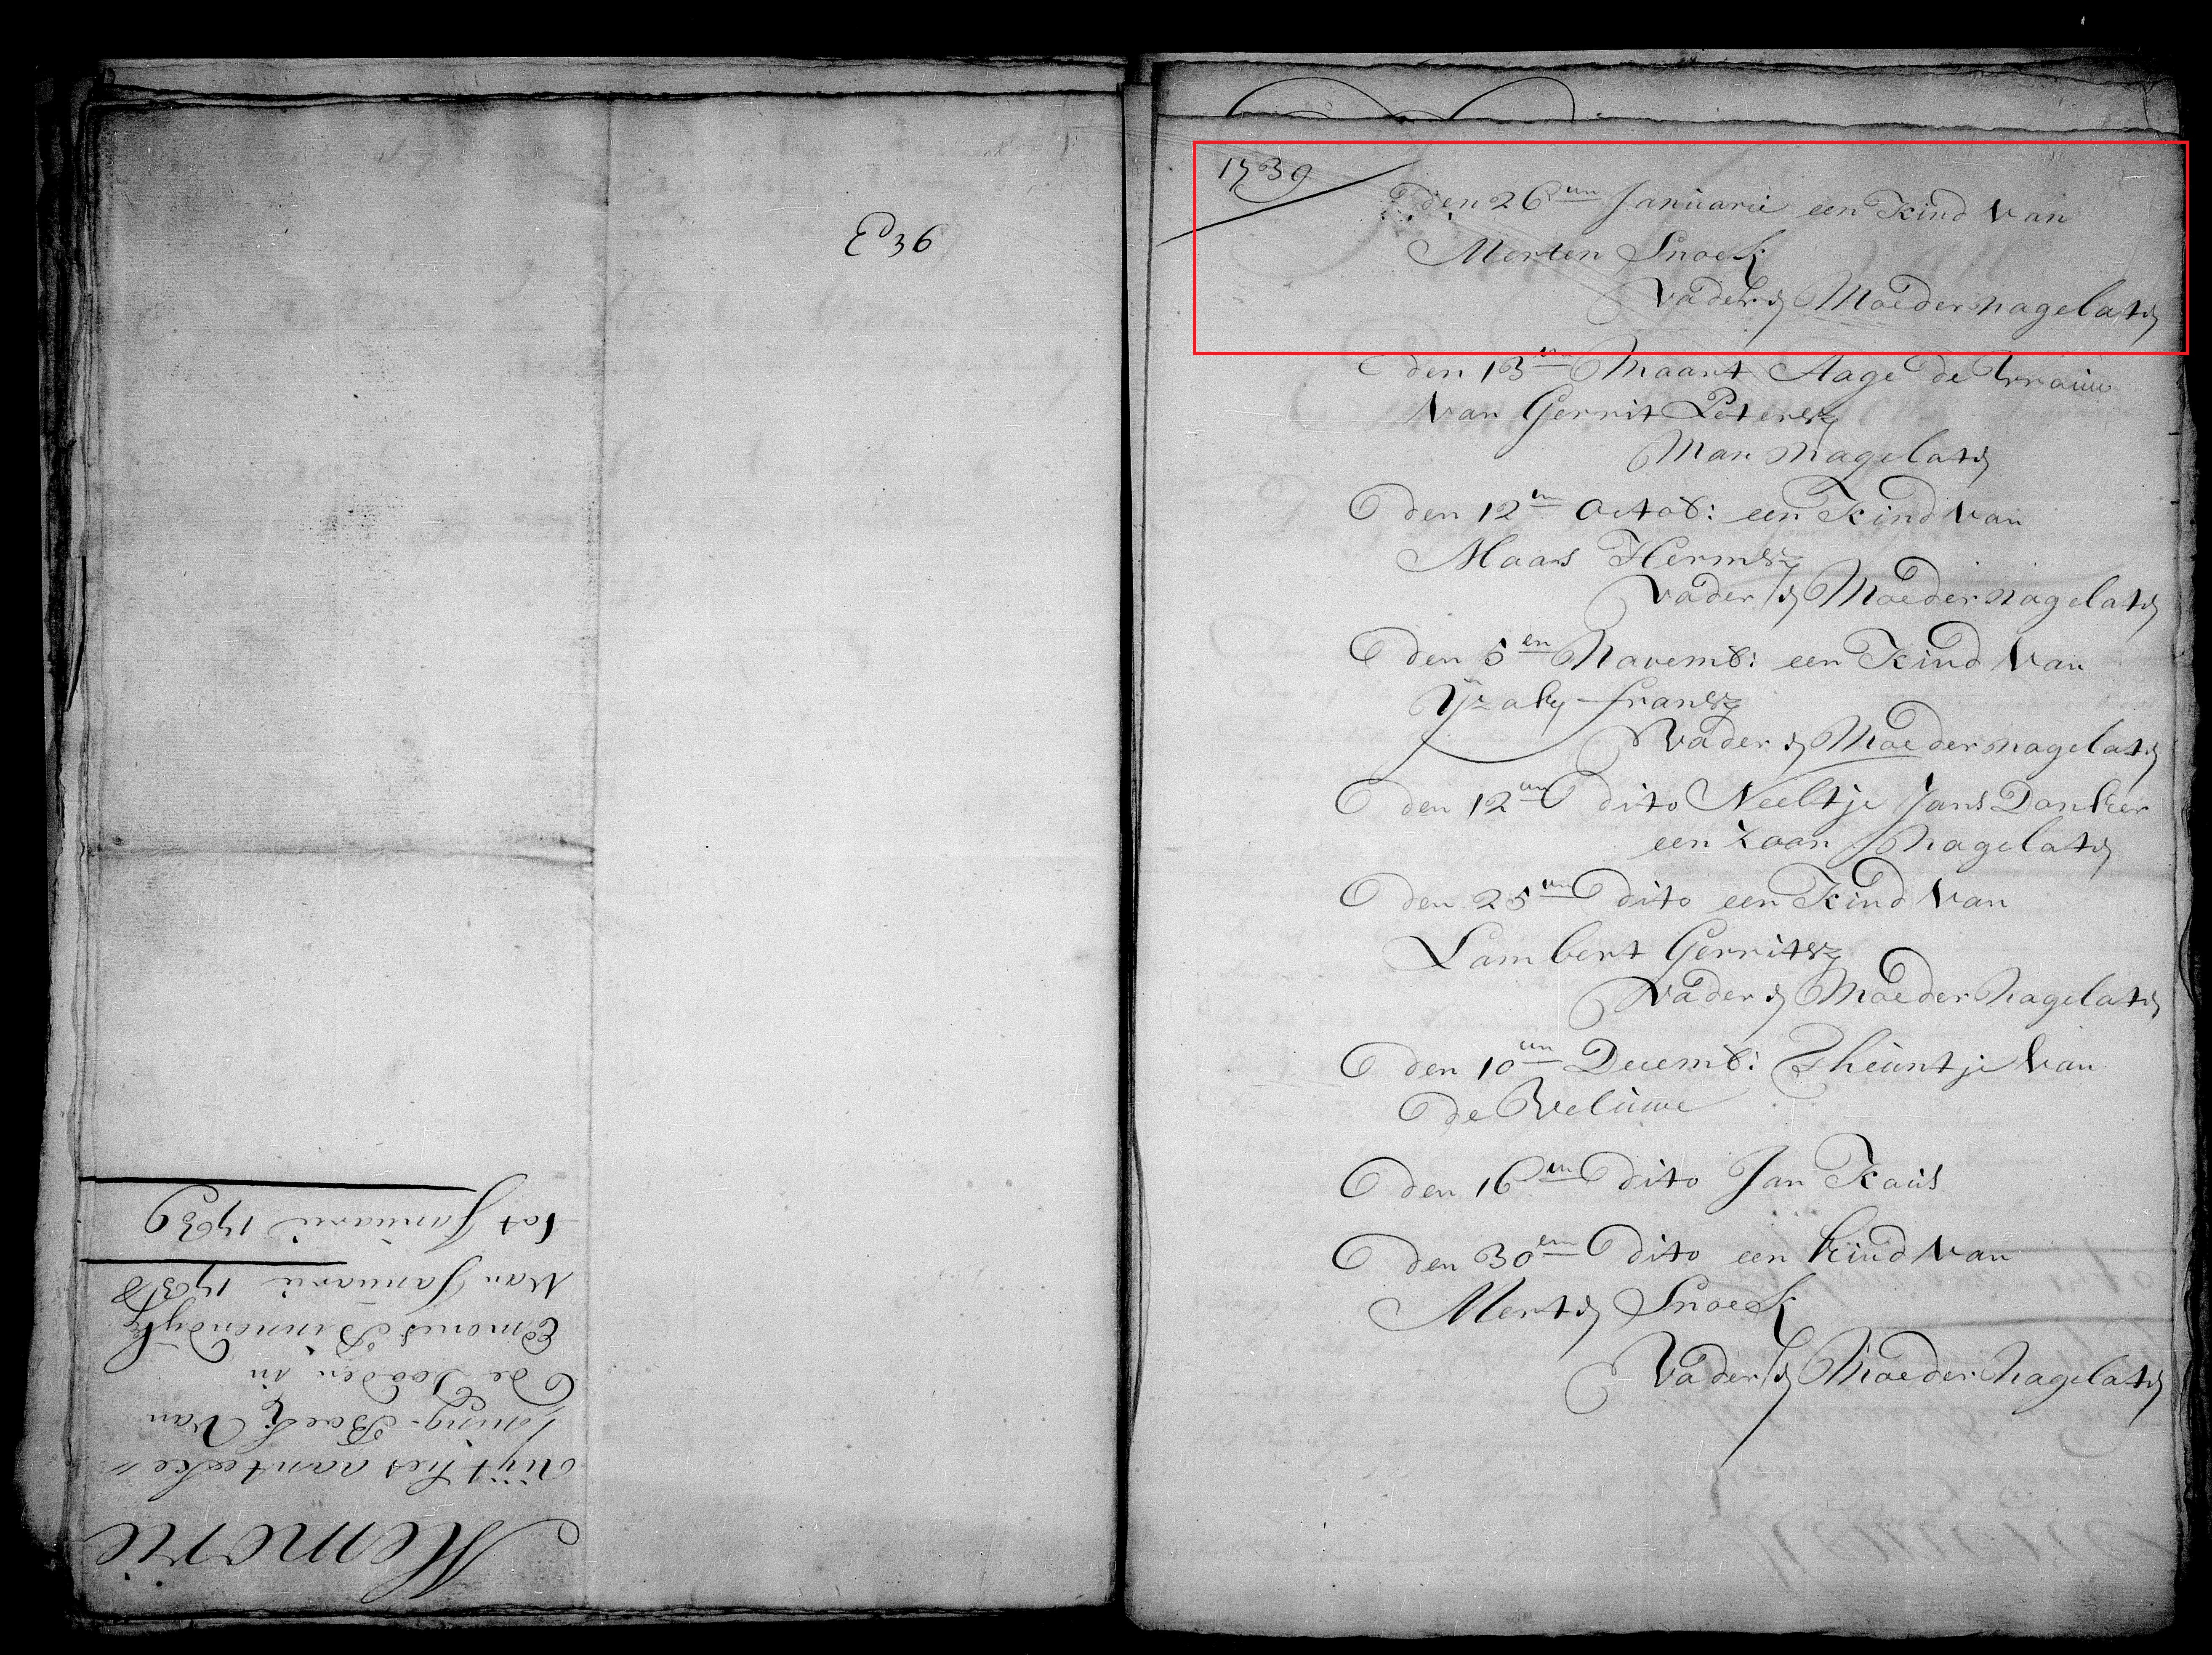 E 36
Memorie
Uijt het aanteeke„
ning-Boek van
de Dooden in
Emond Binnendijk
van Januarii 1738
tot Januarii 1739
1739
den 26en Januarii een Kind van
Merten Snoek
vader & Moeder nagelat&
den 13en Maart Aage de vrouw
van Gerrit Petersz
Man nagelat&
den 12en Octob: een Kind van
Maars Hermsz
vader & Moeder nagelat&
den 5en Novemb: een Kind van
Yzaky fransz
vader & Moeder nagelat&
den 12en dito Neeltje Jans Danker
een zoon nagelat&
den 25en dito een Kind van
Lambert Gerritsz
vader & Moeder nagelat&
den 10en Decemb: Theuntje van
de Veluwe
den 16en dito Jan Kaüs
den 30en dito een kind van
Mert& Snoek
vader & Moeder nagelat&